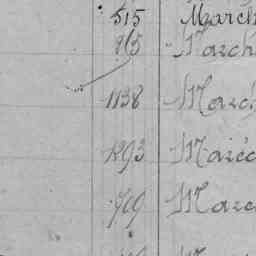 515 March
865 March
1138 March
1293 March
709 March